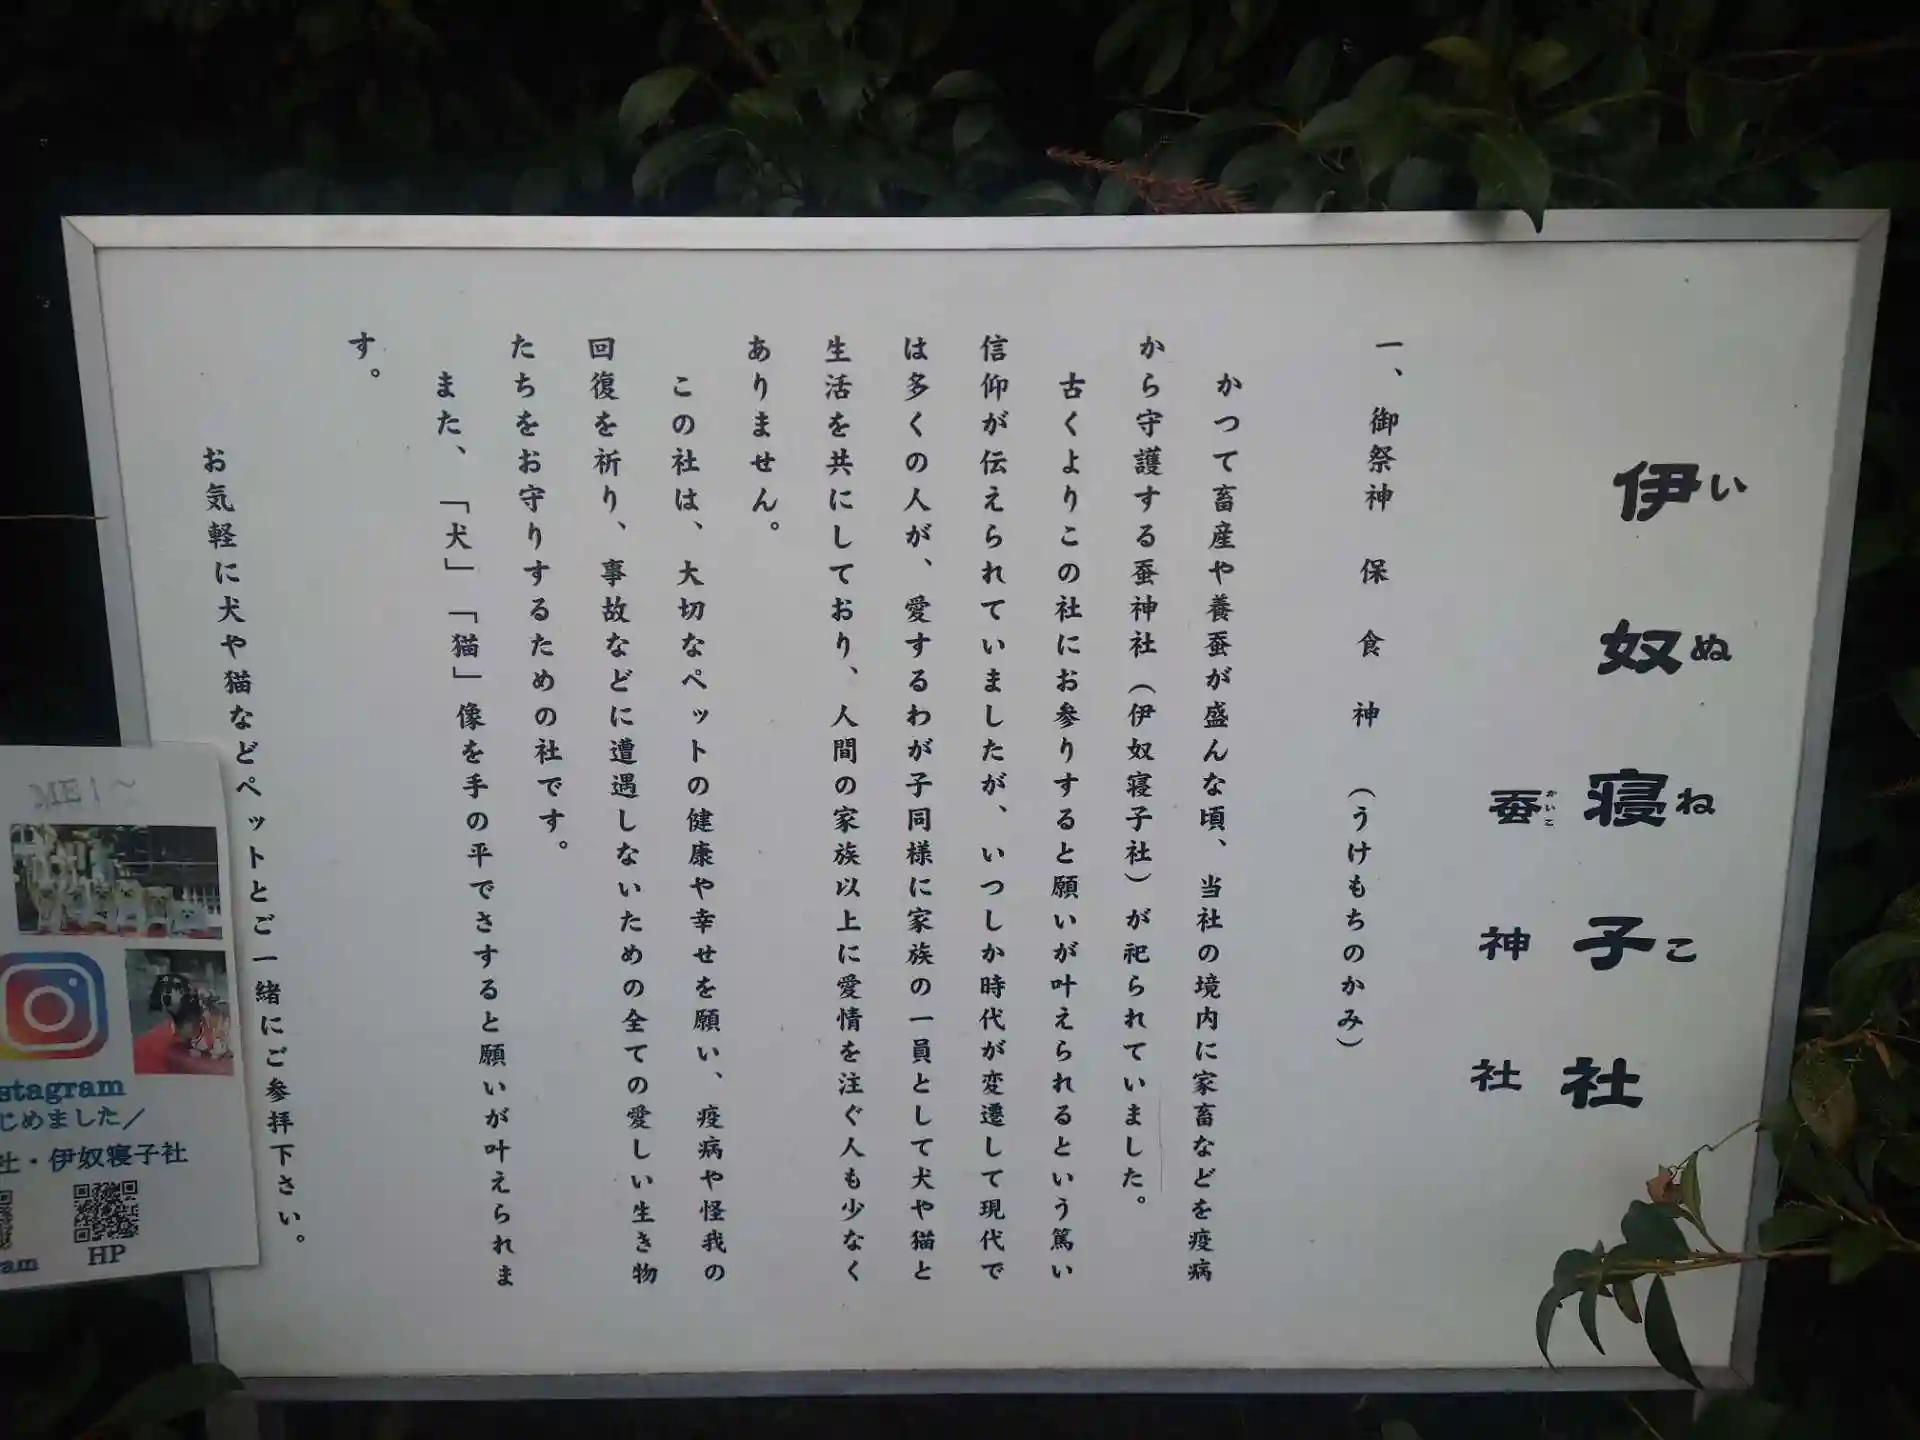 伊奴寝子社
いぬねこ
蚕神社
かいこ
一、御祭神 保食神 （うけもちのかみ）
かつて畜産や養蚕が盛んな頃、当社の境内に家畜などを疫病
から守護する蚕神社（伊奴寝子社）が祀られていました。
古くよりこの社にお参りすると願いが叶えられるという篤い
信仰が伝えられていましたが、いつしか時代が変遷して現代で
は多くの人が、愛するわが子同様に家族の一員として犬や猫と
生活を共にしており、人間の家族以上に愛情を注ぐ人も少なく
ありません。
この社は、大切なペットの健康や幸せを願い、疫病や怪我の
回復を祈り、事故などに遭遇しないための全ての愛しい生き物
たちをお守りするための社です。
また、「犬」「猫」像を手の平でさすると願いが叶えられま
す。
お気軽に犬や猫などペットとご一緒にご参拝下さい。
ME！～
stagram
じめました／
社・伊奴寝子社
ram
HP